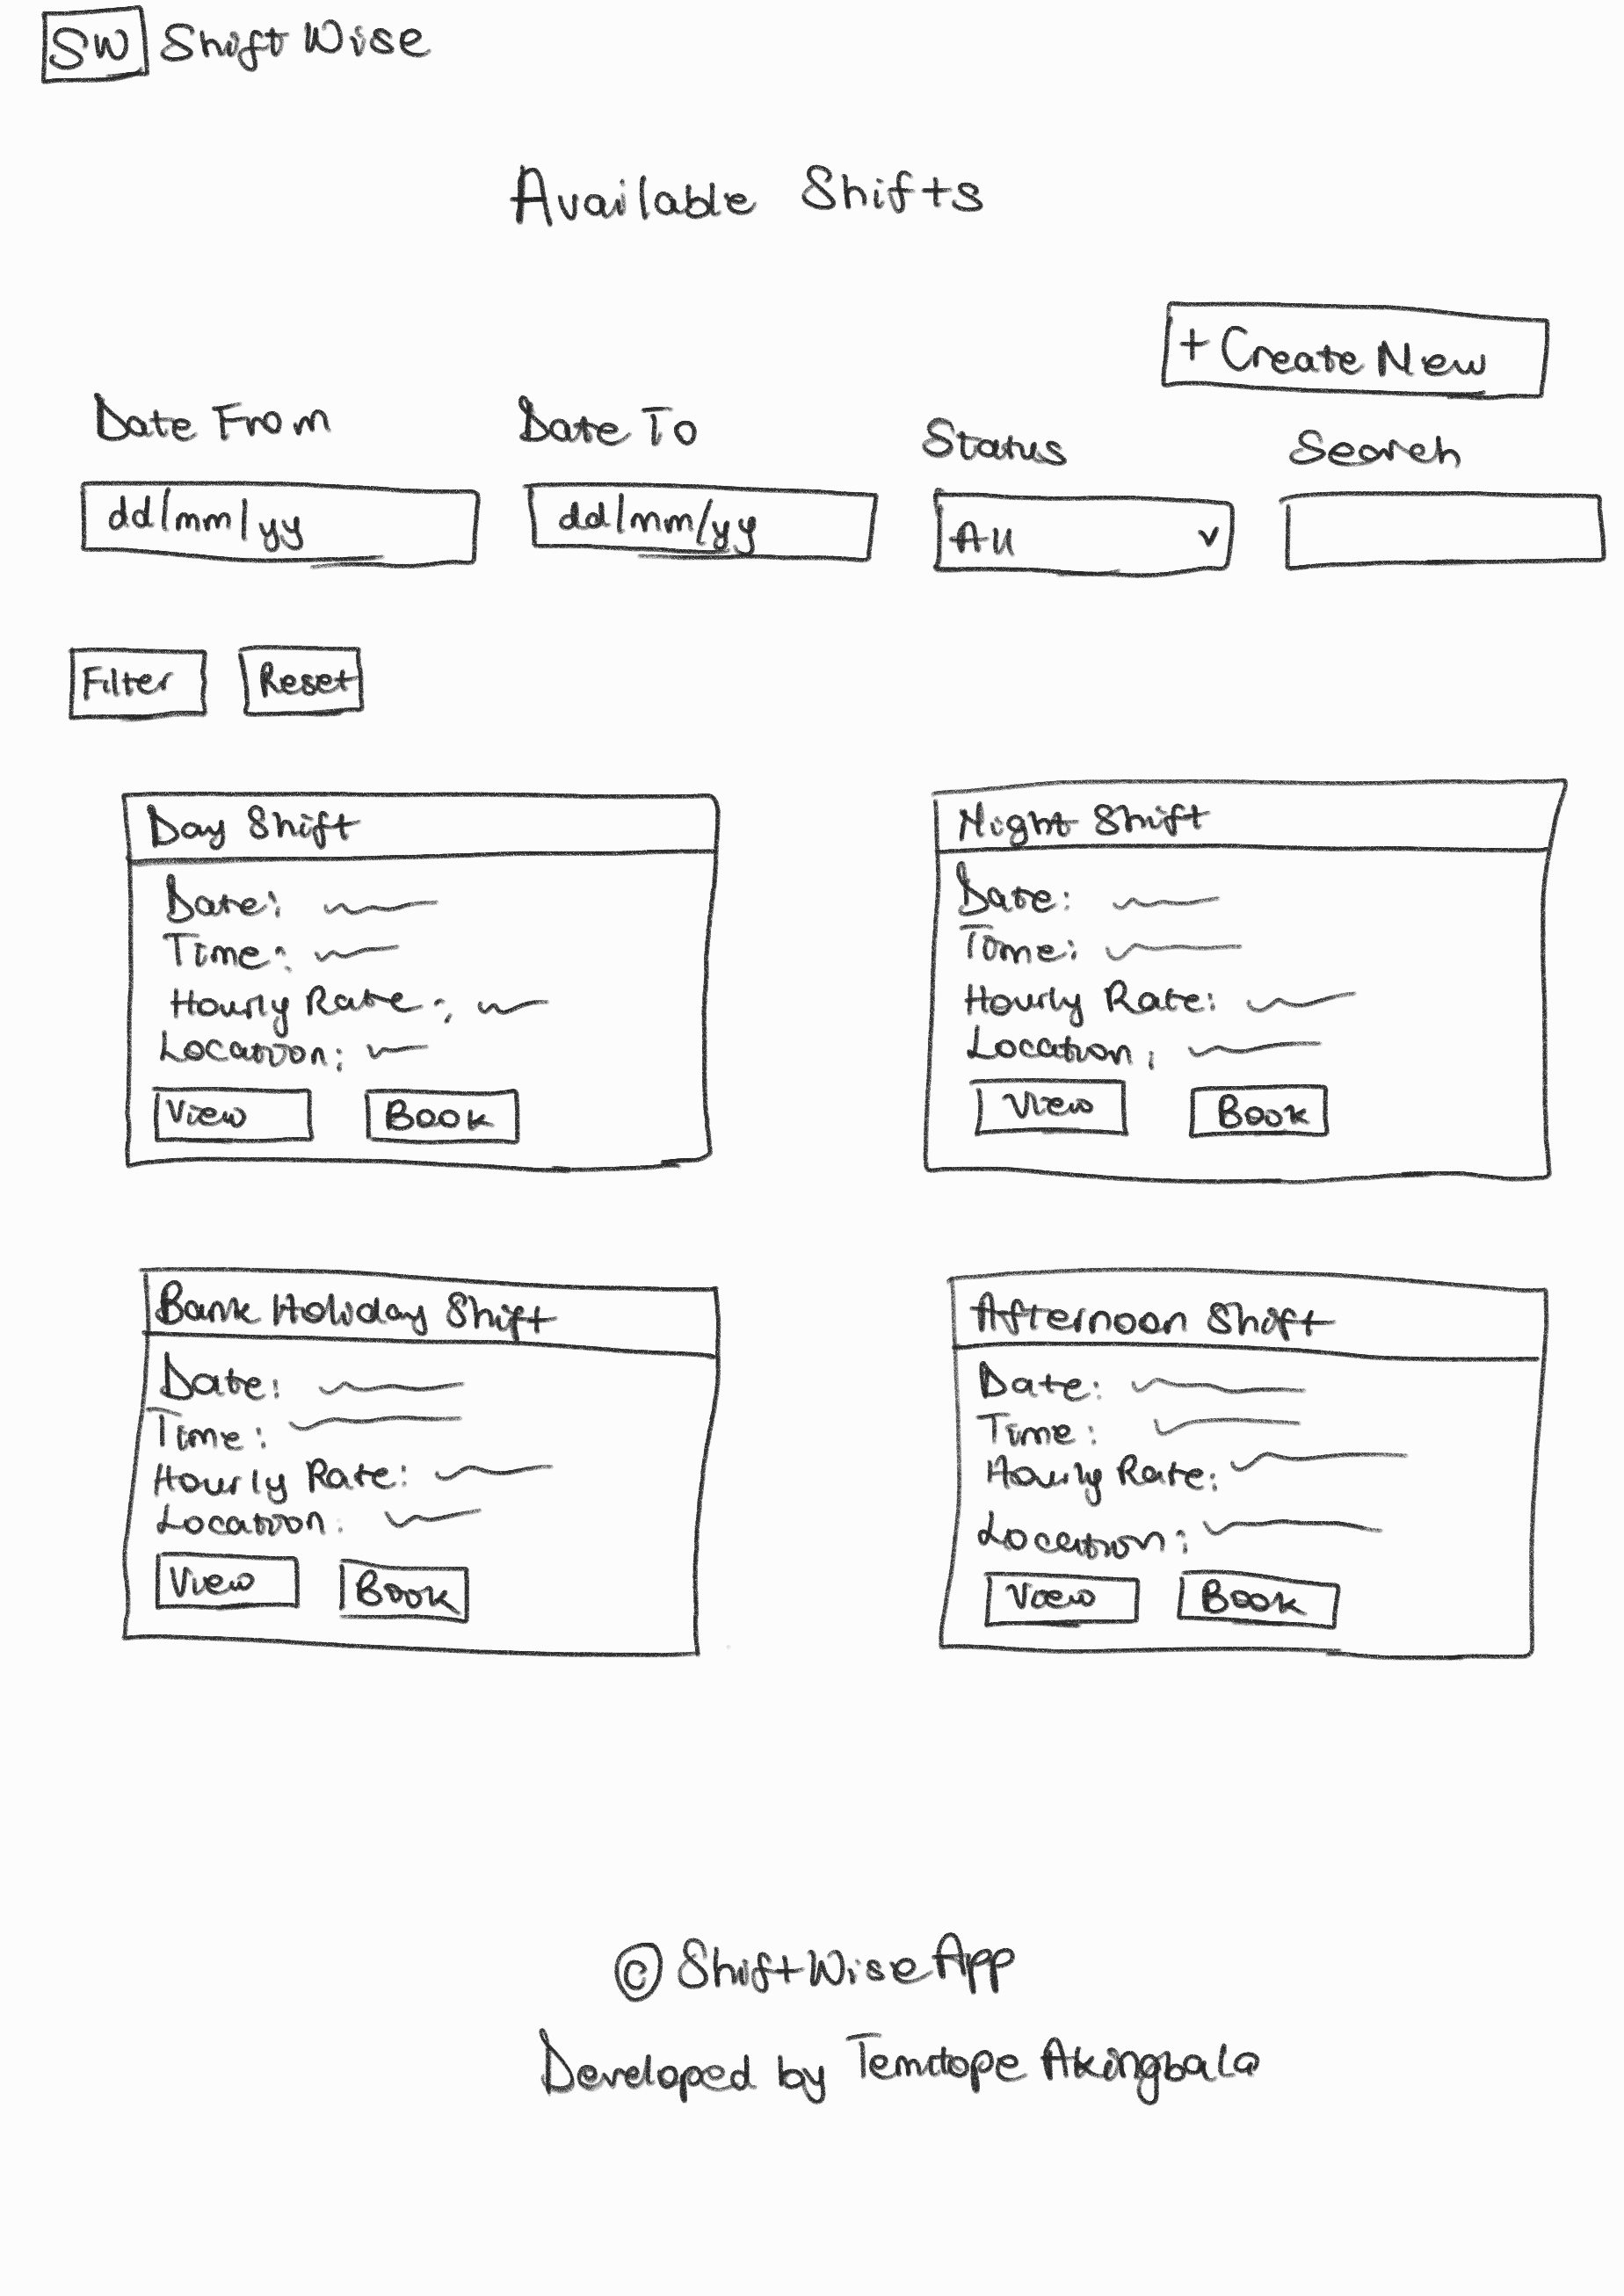 SW Shift Wise
Available Shifts
+ Create New
Date From
Date To
Status
Search
dd/mm/yy
dd/mm/yy
All
Filter
Reset
Day Shift
Date:
Time:
Hourly Rate:
Location:
View
Book
Night Shift
Date:
Time:
Hourly Rate:
Location:
View
Book
Bank Holiday Shift
Date:
Time:
Hourly Rate:
Location:
View
Book
Afternoon Shift
Date:
Time:
Hourly Rate:
Location:
View
Book
© ShiftWise App
Developed by Temitope Akingbala